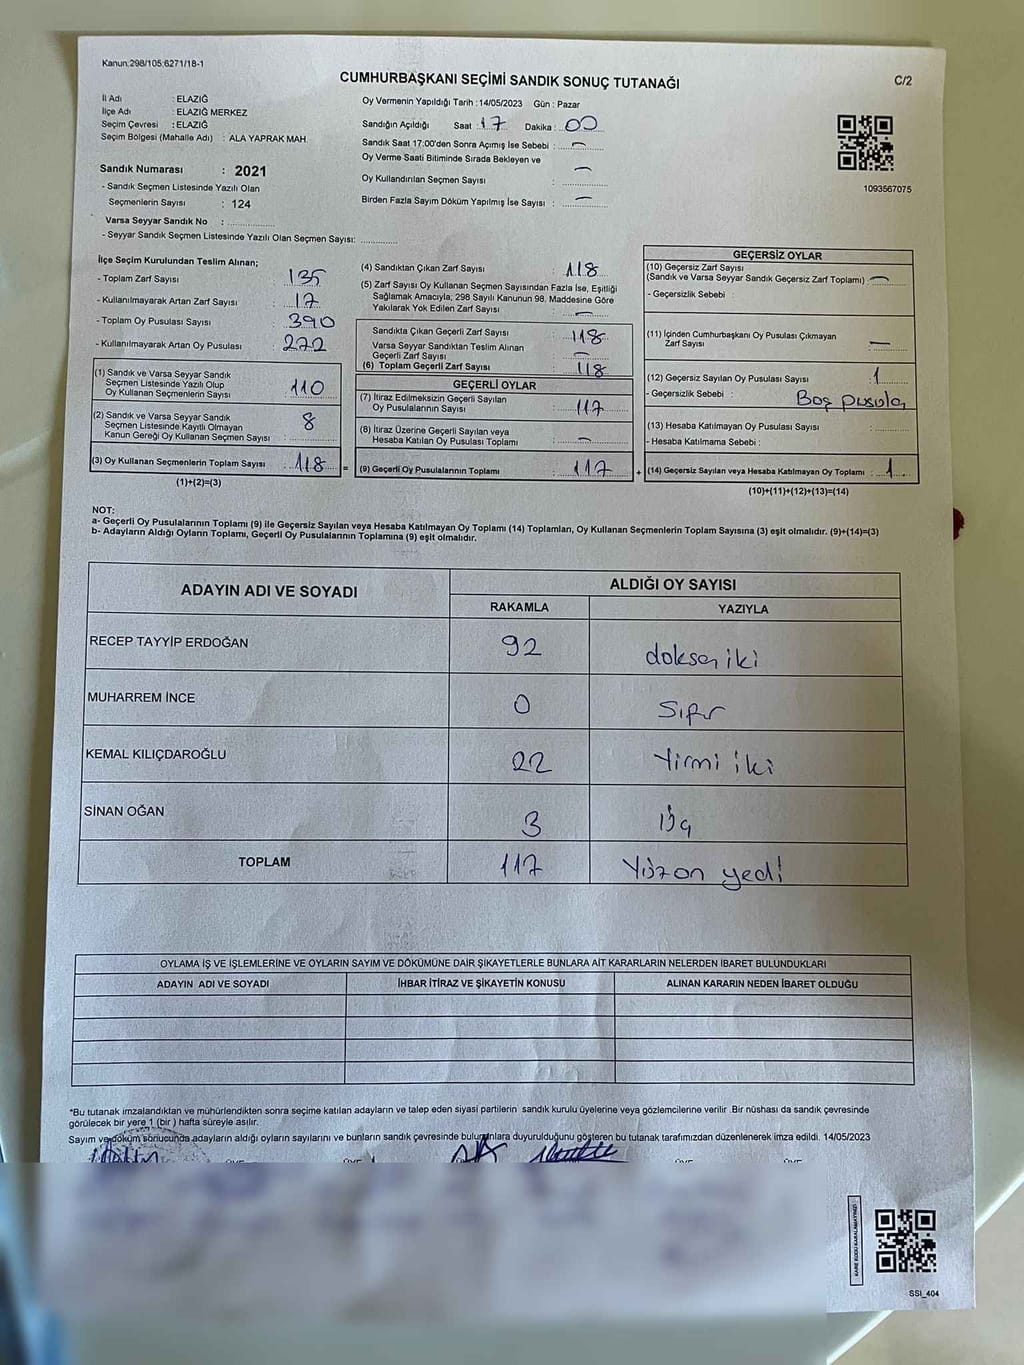 Kanun:298/105;6271/18-1
CUMHURBAŞKANI SEÇİMİ SANDIK SONUÇ TUTANAĞI
C/2
İl Adı : ELAZIĞ
İlçe Adı : ELAZIĞ MERKEZ
Seçim Çevresi : ELAZIĞ
Seçim Bölgesi (Mahalle Adı) : ALA YAPRAK MAH.
Sandık Numarası : 2021
- Sandık Seçmen Listesinde Yazılı Olan
Seçmenlerin Sayısı : 124
Varsa Seyyar Sandık No :
- Seyyar Sandık Seçmen Listesinde Yazılı Olan Seçmen Sayısı:
Oy Vermenin Yapıldığı Tarih : 14/05/2023 Gün : Pazar
Sandığın Açıldığı Saat : 17 Dakika : 00
Sandık Saat 17:00'den Sonra Açımış İse Sebebi : —
Oy Verme Saati Bitiminde Sırada Bekleyen ve
Oy Kullandırılan Seçmen Sayısı : —
Birden Fazla Sayım Döküm Yapılmış İse Sayısı : —
1093567075
İlçe Seçim Kurulundan Teslim Alınan;
- Toplam Zarf Sayısı : 135
- Kullanılmayarak Artan Zarf Sayısı : 17
- Toplam Oy Pusulası Sayısı : 390
- Kullanılmayarak Artan Oy Pusulası : 272
(1) Sandık ve Varsa Seyyar Sandık
Seçmen Listesinde Yazılı Olup
Oy Kullanan Seçmenlerin Sayısı : 110
(2) Sandık ve Varsa Seyyar Sandık
Seçmen Listesinde Kayıtlı Olmayan
Kanun Gereği Oy Kullanan Seçmen Sayısı : 8
(3) Oy Kullanan Seçmenlerin Toplam Sayısı : 118 =
(1)+(2)=(3)
(4) Sandıktan Çıkan Zarf Sayısı : 118
(5) Zarf Sayısı Oy Kullanan Seçmen Sayısından Fazla İse, Eşitliği
Sağlamak Amacıyla, 298 Sayılı Kanunun 98. Maddesine Göre
Yakılarak Yok Edilen Zarf Sayısı : —
Sandıkta Çıkan Geçerli Zarf Sayısı : 118
Varsa Seyyar Sandıktan Teslim Alınan
Geçerli Zarf Sayısı : —
(6) Toplam Geçerli Zarf Sayısı : 118
GEÇERLİ OYLAR
(7) İtiraz Edilmeksizin Geçerli Sayılan
Oy Pusulalarının Sayısı : 117
(8) İtiraz Üzerine Geçerli Sayılan veya
Hesaba Katılan Oy Pusulası Toplamı : —
(9) Geçerli Oy Pusulalarının Toplamı : 117 +
GEÇERSİZ OYLAR
(10) Geçersiz Zarf Sayısı
(Sandık ve Varsa Seyyar Sandık Geçersiz Zarf Toplamı) : —
- Geçersizlik Sebebi :
(11) İçinden Cumhurbaşkanı Oy Pusulası Çıkmayan
Zarf Sayısı : —
(12) Geçersiz Sayılan Oy Pusulası Sayısı : 1
- Geçersizlik Sebebi : Boş pusula
(13) Hesaba Katılmayan Oy Pusulası Sayısı :
- Hesaba Katılmama Sebebi :
(14) Geçersiz Sayılan veya Hesaba Katılmayan Oy Toplamı : 1
(10)+(11)+(12)+(13)=(14)
NOT:
a- Geçerli Oy Pusulalarının Toplamı (9) ile Geçersiz Sayılan veya Hesaba Katılmayan Oy Toplamı (14) Toplamları, Oy Kullanan Seçmenlerin Toplam Sayısına (3) eşit olmalıdır. (9)+(14)=(3)
b- Adayların Aldığı Oyların Toplamı, Geçerli Oy Pusulalarının Toplamına (9) eşit olmalıdır.
ADAYIN ADI VE SOYADI
ALDIĞI OY SAYISI
RAKAMLA YAZIYLA
RECEP TAYYİP ERDOĞAN 92 doksan iki
MUHARREM İNCE 0 Sıfır
KEMAL KILIÇDAROĞLU 22 Yirmi iki
SİNAN OĞAN 3 üç
TOPLAM 117 Yüzon yedi
OYLAMA İŞ VE İŞLEMLERİNE VE OYLARIN SAYIM VE DÖKÜMÜNE DAİR ŞİKAYETLERLE BUNLARA AİT KARARLARIN NELERDEN İBARET BULUNDUKLARI
ADAYIN ADI VE SOYADI İHBAR İTİRAZ VE ŞİKAYETİN KONUSU ALINAN KARARIN NEDEN İBARET OLDUĞU
*Bu tutanak imzalandıktan ve mühürlendikten sonra seçime katılan adayların ve talep eden siyasi partilerin sandık kurulu üyelerine veya gözlemcilerine verilir .Bir nüshası da sandık çevresinde
görülecek bir yere 1 (bir ) hafta süreyle asılır.
Sayım ve döküm sonucunda adayların aldığı oyların sayılarını ve bunların sandık çevresinde bulunanlara duyurulduğunu gösteren bu tutanak tarafımızdan düzenlenerek imza edildi. 14/05/2023
KARE KODU KARALAMAYINIZ!
SSI_404